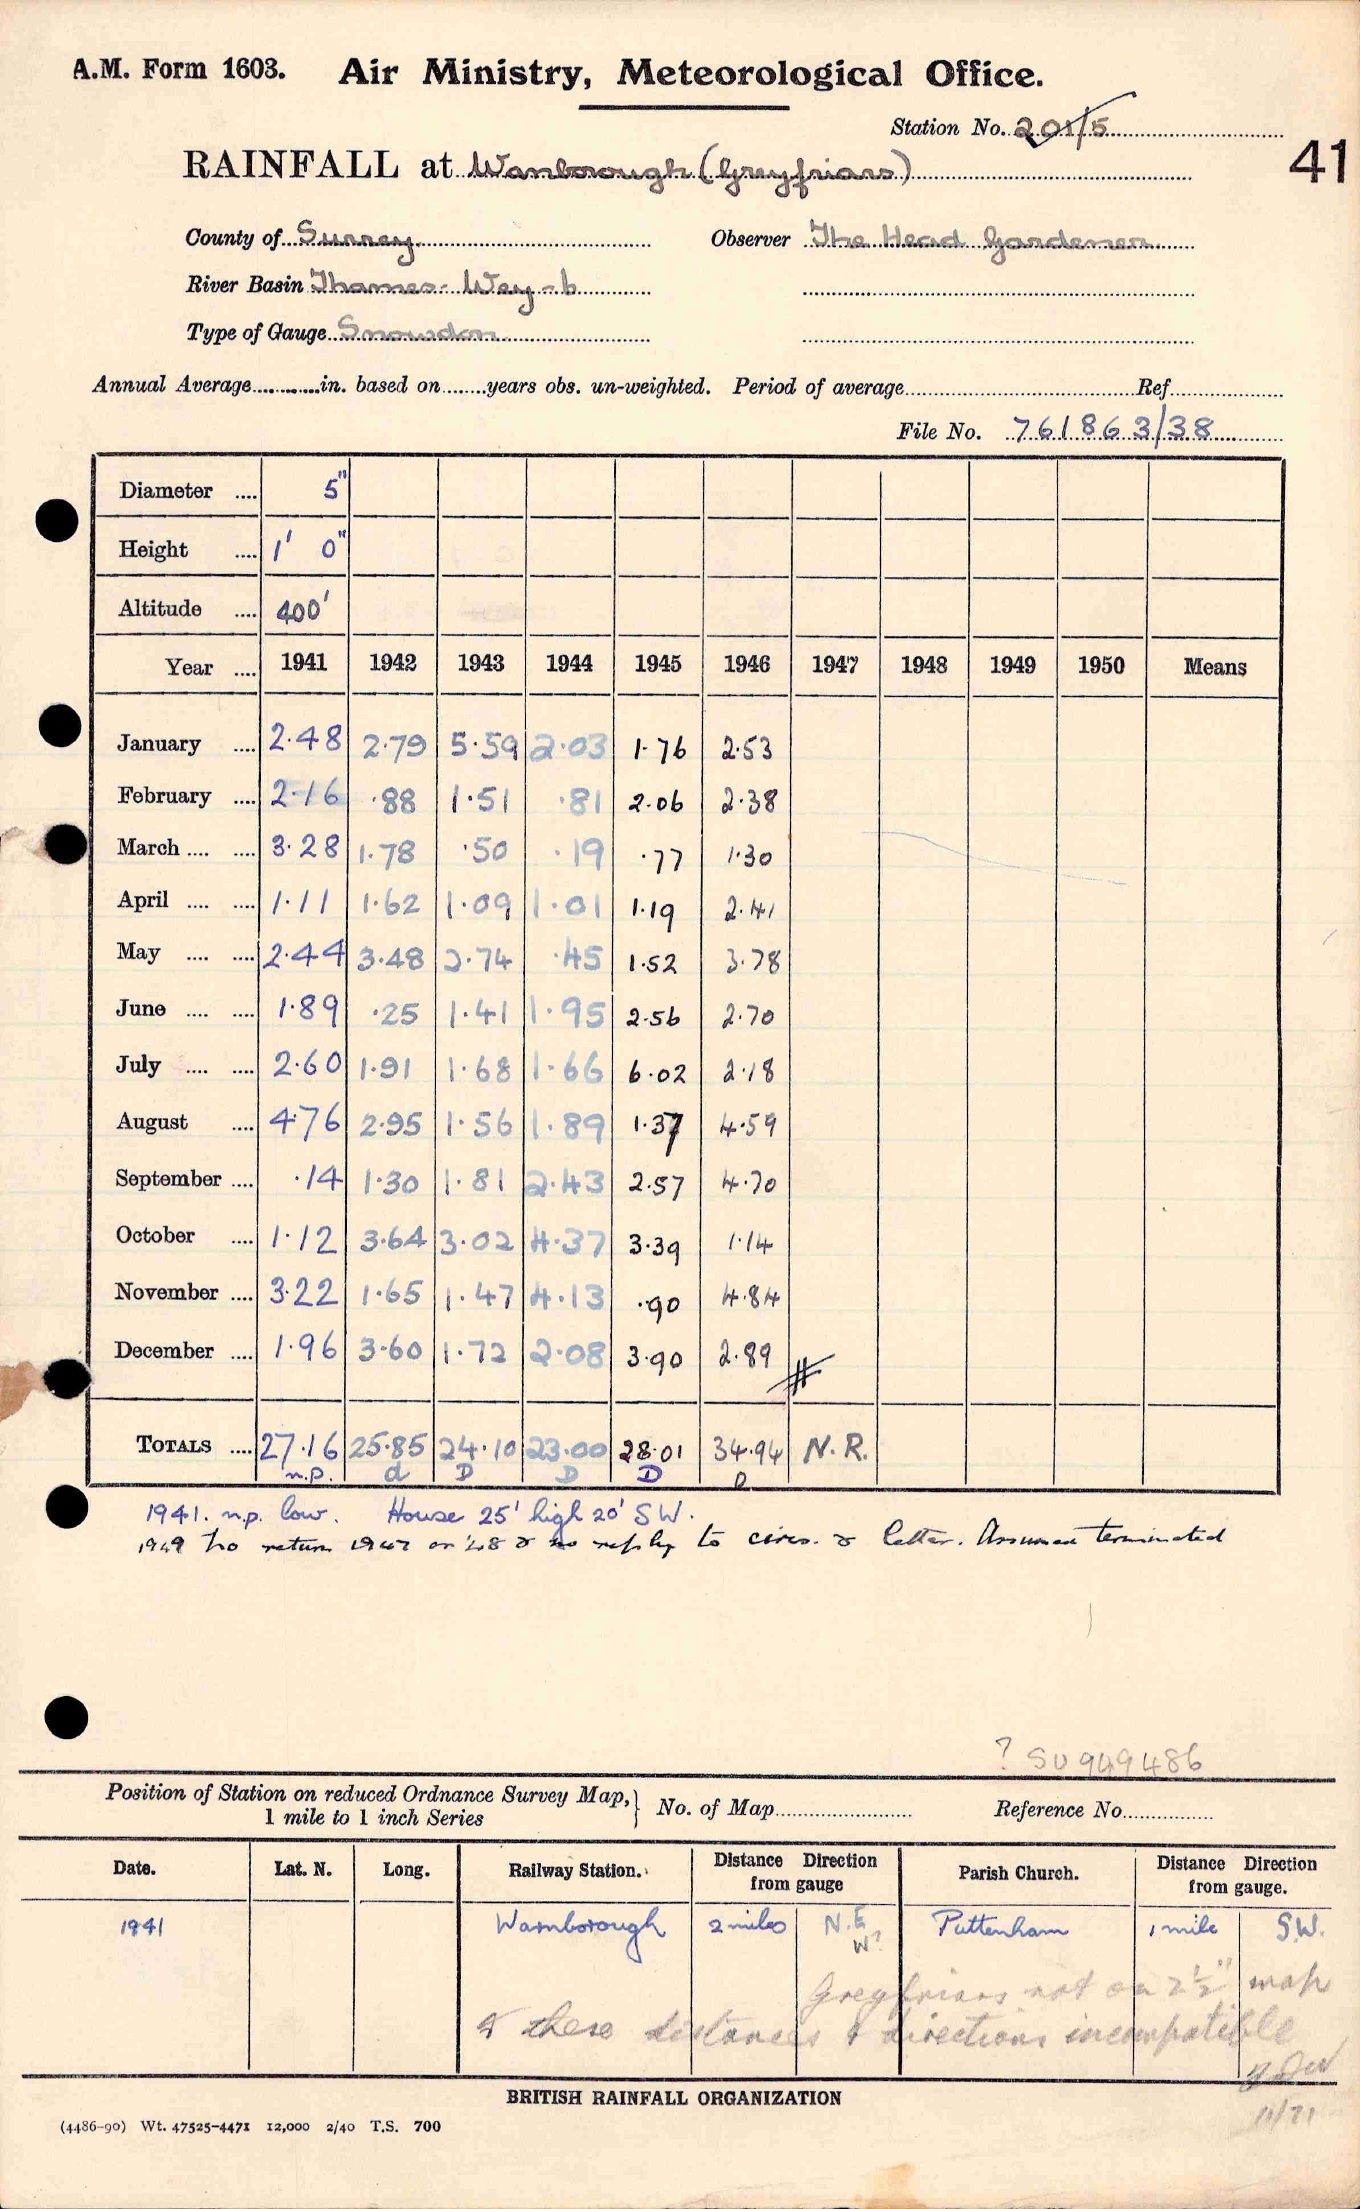 A.M. Form 1603. Air Ministry, Meteorological Office.
Station No. 201/5
41
RAINFALL at Wanborough (Greyfriars)
County of Surrey Observer The Head Gardener
River Basin Thames - Wey - b
Type of Gauge Snowdon
Annual Average in. based on years obs. un-weighted. Period of average Ref.
File No. 761863/38
Diameter .... 5"
Height .... 1' 0"
Altitude .... 400'
Year .... 1941 1942 1943 1944 1945 1946 1947 1948 1949 1950 Means
January .... 2.48 2.79 5.59 2.03 1.76 2.53
February .... 2.16 .88 1.51 .81 2.06 2.38
March .... .... 3.28 1.78 .50 .19 .77 1.30
April .... .... 1.11 1.62 1.09 1.01 1.19 2.41
May .... .... 2.44 3.48 2.74 .45 1.52 3.78
June .... .... 1.89 .25 1.41 1.95 2.56 2.70
July .... .... 2.60 1.91 1.68 1.66 6.02 2.18
August .... 4.76 2.95 1.56 1.89 1.37 4.59
September .... .14 1.30 1.81 2.43 2.57 4.70
October .... 1.12 3.64 3.02 4.37 3.39 1.14
November .... 3.22 1.65 1.47 4.13 .90 4.84
December .... 1.96 3.60 1.72 2.08 3.90 2.89
TOTALS .... 27.16 25.85 24.10 23.00 28.01 34.94 N.R.
n.p. d D D D D
1941. n.p. low. House 25' high 20' SW.
1949 No return 1947 or '48 & no reply to circ. & letter. Assumed terminated
? SU 949486
Position of Station on reduced Ordnance Survey Map, 1 mile to 1 inch Series } No. of Map Reference No.
Date. Lat. N. Long. Railway Station. Distance Direction from gauge Parish Church. Distance Direction from gauge.
1941 Wanborough 2 miles N.E Puttenham 1 mile S.W.
W?
Greyfriars not on 2½" map
& these distances & directions incompatible
11/71
BRITISH RAINFALL ORGANIZATION
(4486-90) Wt. 47525-4471 12,000 2/40 T.S. 700